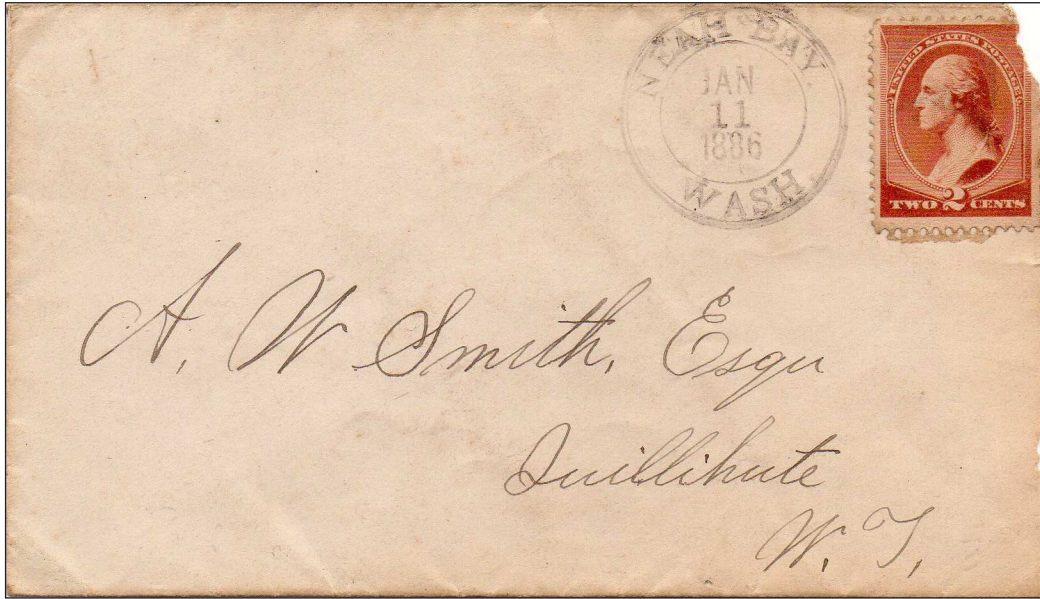 NEAH BAY
JAN
11
1886
WASH.
UNITED STATES POSTAGE
TWO 2 CENTS
A. W Smith, Esqu
Quillihute
W. T.